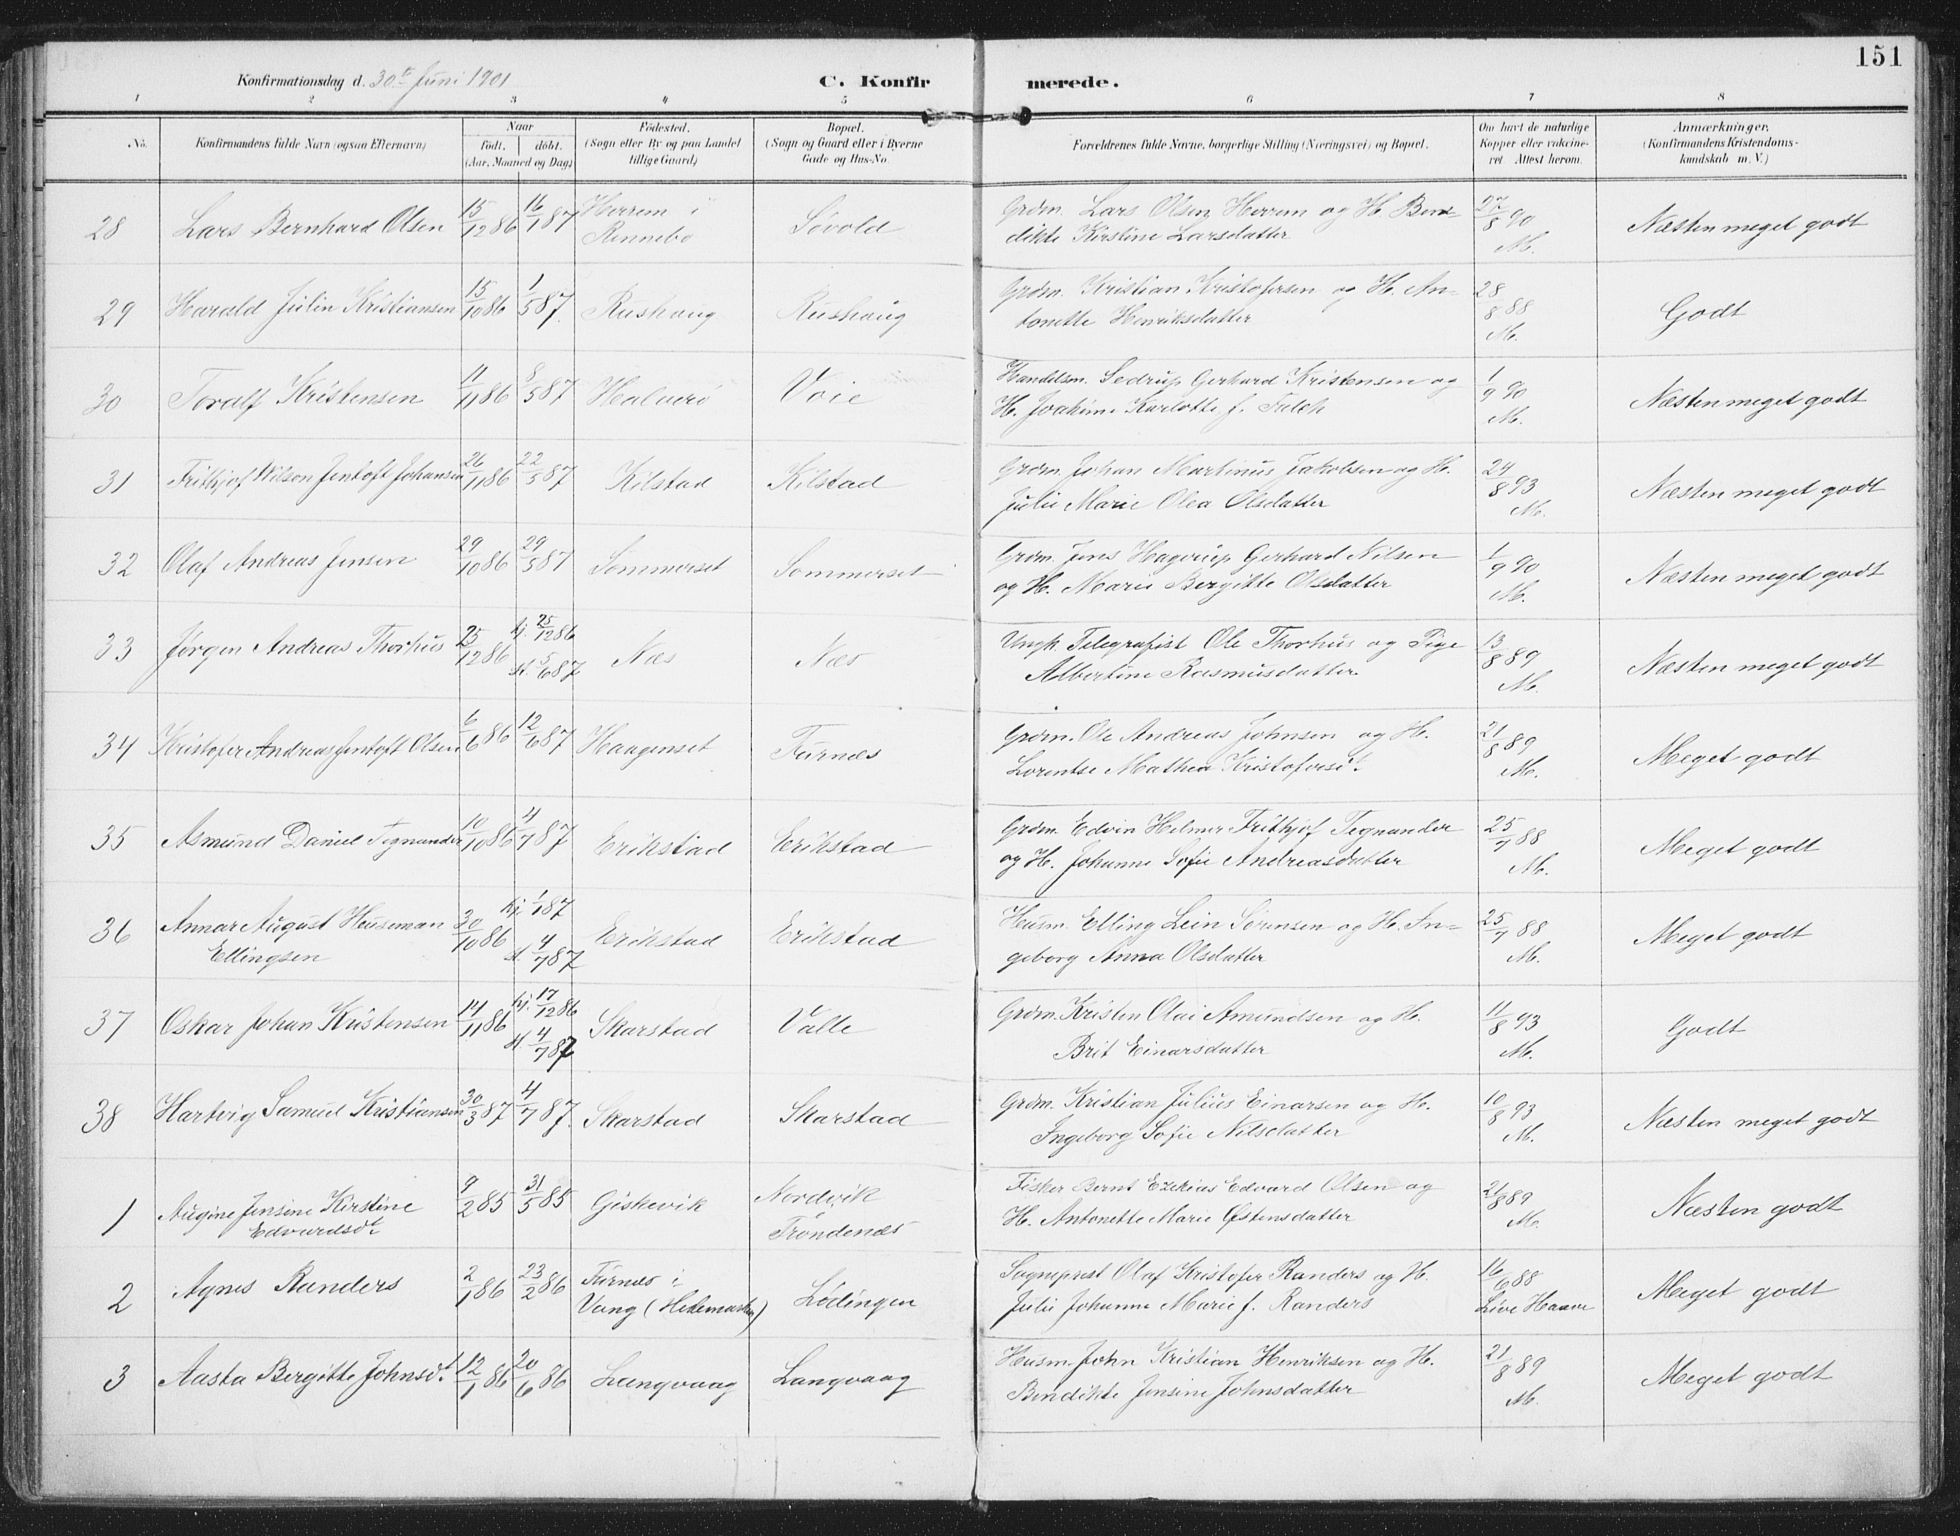 151
Konfirmationsdag d. 30te Juni 1901
C. Konfirmerede.
1 2 3 4 5 6 7 8
No.
Konfirmandens fulde Navn (ogsaa Efternavn)
Naar
født. døbt.
(Aar, Maaned og Dag.)
Fødested.
(Sogn eller By og paa Landet
tillige Gaard.)
Bopæl.
(Sogn og Gaard eller i Byerne
Gade og Hus-No.
Forældrenes fulde Navne, borgerlige Stilling (Næringsvei) og Bopæl.
Om havt de naturlige
Kopper eller vakcineret. Attest herom.
Anmærkninger.
(Konfirmandens Kristendoms-
kundskab m. V.)
28 Lars Bernhard Olsen 15/12 86 16/1 87 Herrem i Rennebo Søvold Grdm. Lars Olsen Herrem og H. Ben-
dikte Kirstine Larsdatter 27/8 90 M. Næsten meget godt
29 Harald Julin Kristiansen 15/10 86 1/5 87 Rushaug Rushaug Grdm. Kristian Kristofersen og H. An-
tonette Henriksdatter 28/8 88 M. Godt
30 Toralf Kristensen 11/11 86 8/5 87 Halverø Voie Handelsm. Sedrup Gerhard Kristensen og
H. Joakime Karlotte f. Falch 1/9 90 M. Næsten meget godt
31 Frithjof Nilson Jentoft Johansen 26/11 86 22/5 87 Kilstad Kilstad Grdm. Johan Martinus Jakobsen og H.
Julie Marie Olea Olsdatter 24/8 93 M. Næsten meget godt
32 Olaf Andreas Jensen 29/10 86 29/5 87 Sommerset Sommerset Grdm. Jens Hagerup Gerhard Nilsen
og H. Marie Bergitte Olsdatter 1/9 90 M. Næsten meget godt
33 Jørgen Andreas Thorhus 25/12 86 hj. 25/12 86 st. 5/6 87 Næs Næs Ungk. Telegrafist Ole Thorhus og Pige
Albertine Rasmusdatter 13/8 89 M. Næsten meget godt
34 Kristofer Andreas Jentoft Olsen 6/6 86 12/6 87 Haagenset Furnæs Grdm. Ole Andreas Johnsen og H.
Lorentse Mathea Kristofersdt. 21/8 89 M. Meget godt
35 Asmund Daniel Tegnander 10/10 86 4/7 87 Erikstad Erikstad Grdm. Edvin Helmer Frithjof Tegnander
og H. Johanne Sofie Andreasdatter 25/7 88 M. Meget godt
36 Annar August Heuseman
Ellingsen 30/10 86 hj. 1/1 87 st. 4/7 87 Erikstad Erikstad Husm. Elling Lein Sørensen og H. In-
geborg Anna Olsdatter 25/7 88 M. Meget godt
37 Oskar Johan Kristensen 14/11 86 hj. 17/12 86 st. 4/7 87 Skarstad Valle Grdm. Kristen Olai Amundsen og H.
Brit Einarsdatter 11/8 93 M. Godt
38 Hartvig Samuel Kristiansen 30/3 87 4/7 87. Skarstad Skarstad Grdm. Kristian Julius Einarsen og H.
Ingeborg Sofie Nilsdatter 10/8 93 M. Næsten meget godt
1 Augine Jensine Kirstine
Edvardsdt. 9/2 85 31/5 85 Giskevik Nordvik Trondenæs Fisker Bernt Ezekias Edvard Olsen og
H. Antonette Marie Østensdatter 21/8 89 M. Næsten godt
2 Agnes Randers 2/1 86 23/2 86 Furnæs i
Vang (Hedemarken) Lødingen Sogneprest Olaf Kristofer Randers og H.
Julie Johanne Marie f. Randers 16/6 88 Live Haave Meget godt
3 Aasta Bergitte Johnsdt. 12/1 86 20/6 86 Langvaag Langvaag Husm. John Kristian Henriksen og H.
Bendikte Jensine Johnsdatter 21/8 89 M. Meget godt